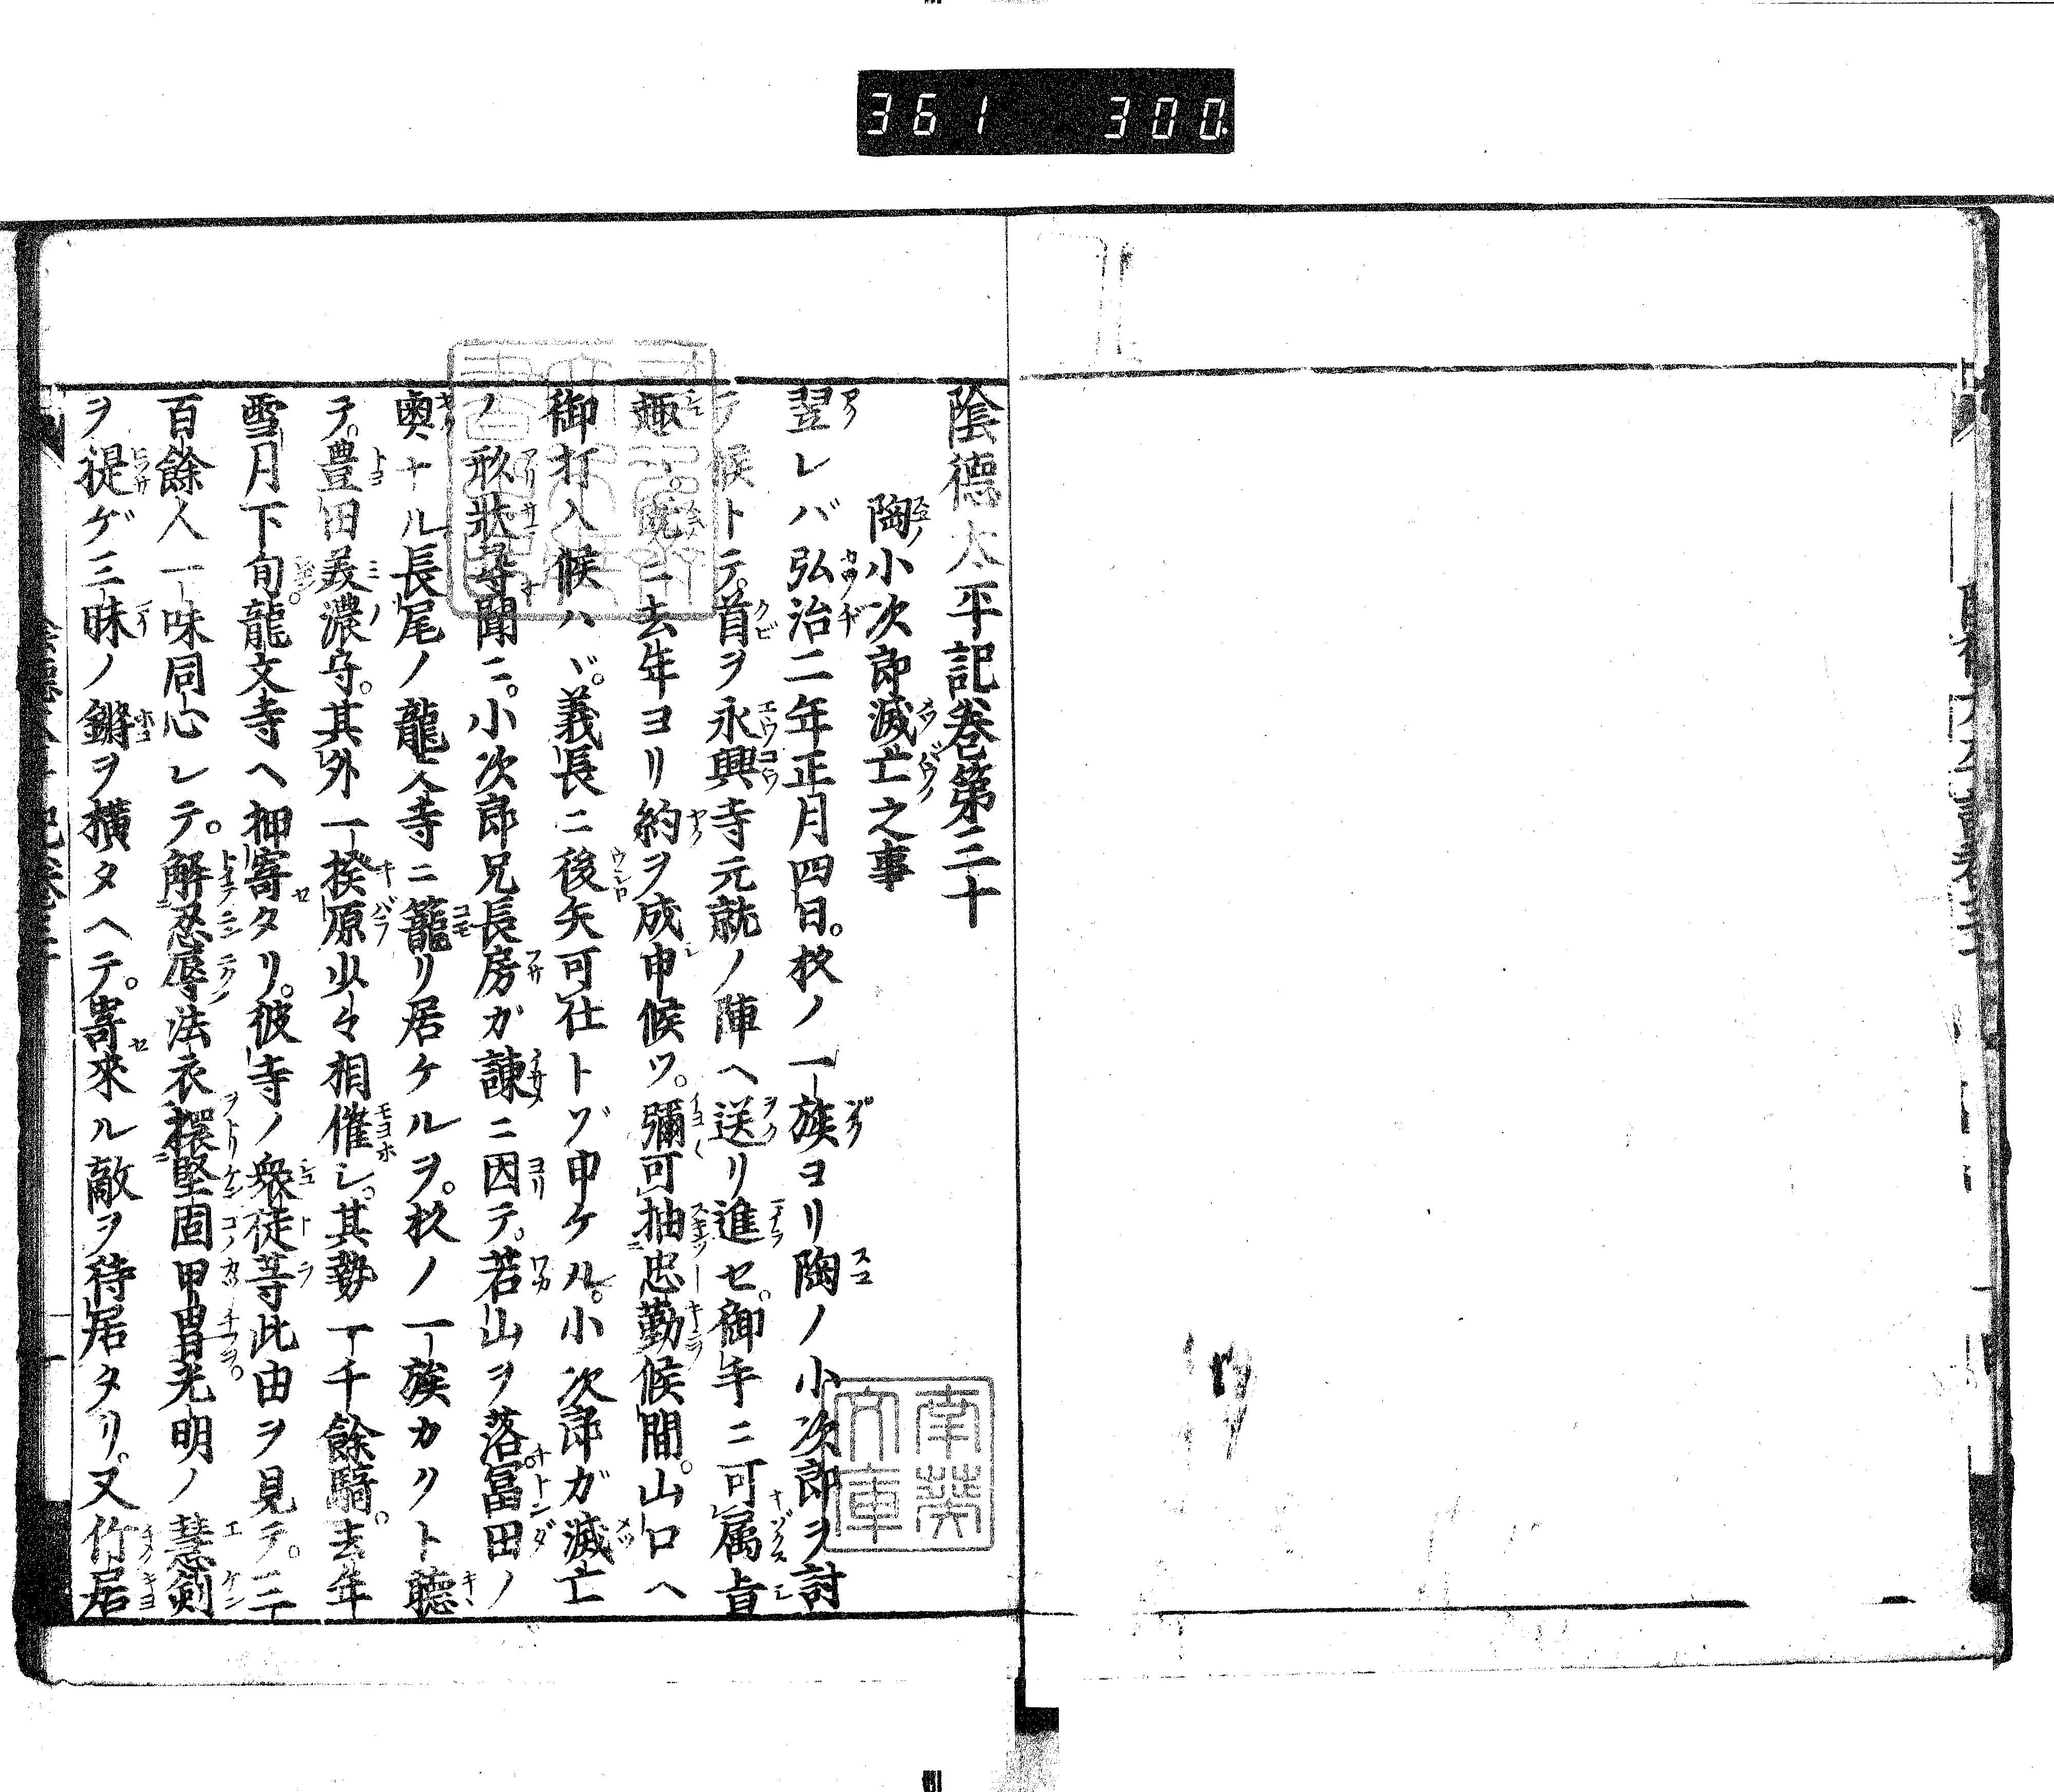 361 300
陰德太平記卷第三十
陶小次郎滅亡之事
翌レバ弘治二年正月四日。杦ノ一族ヨリ陶ノ小次郎ヲ討
テ候トテ。首ヲ永興寺元就ノ陣ヘ送リ進セ。御手ニ可属旨
趣。ニ去年ヨリ約ヲ成申候ツ。彌可抽忠勤候間。山口ヘ
御打入候ハヾ。義長ニ後矢可仕トゾ申ケル。小次郎ガ滅亡
ノ形狀尋聞ニ。小次郎兄長房ガ諫ニ因テ。若山ヲ落冨田ノ
奥ナル長尾ノ龍文寺ニ籠リ居ケルヲ。杦ノ一族カクト聴
テ。豊田美濃守。其外一揆原少々相催シ。其勢一千餘騎。去年
雪月下旬。龍文寺ヘ押寄タリ。彼寺ノ衆徒等此由ヲ見テ。二
百餘人一味同心シテ。解忍辱法衣擐堅固甲冑光明ノ慧劍
ヲ提ゲ三昧ノ鏘ヲ横タヘテ。寄來ル敵ヲ待居タリ。又竹居
南葵
文庫